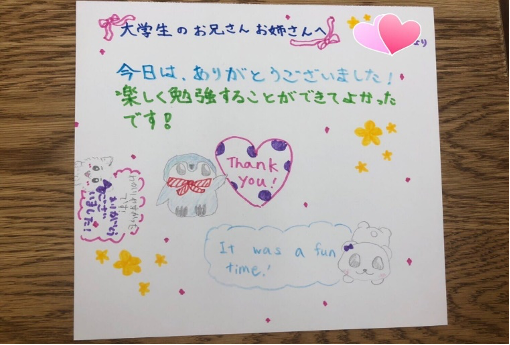 大学生のお兄さんお姉さんへ
より
今日は、ありがとうございました!
楽しく勉強することができてよかった
です!
Thank
you!
ありがとう
ござい
ました!
It was a fun
time.!